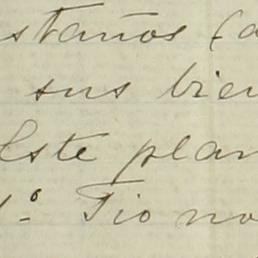 staños (a
sus bien
Este plan
1.º Pio no